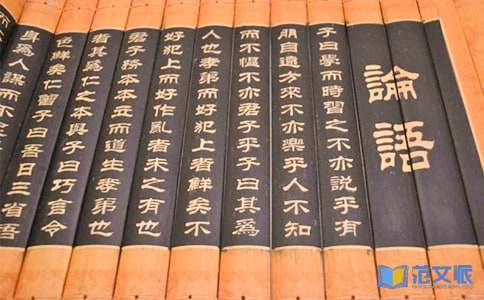 論語
子曰學而時習之不亦說乎有
朋自遠方來不亦樂乎人不知
而不慍不亦君子乎子曰其為
人也孝弟而好犯上者鮮矣不
好犯上而好作亂者未之有也
君子務本本立而道生孝弟也
者其為仁之本與子曰巧言令
色鮮矣仁曾子曰吾日三省吾
身為人謀而不
范文派